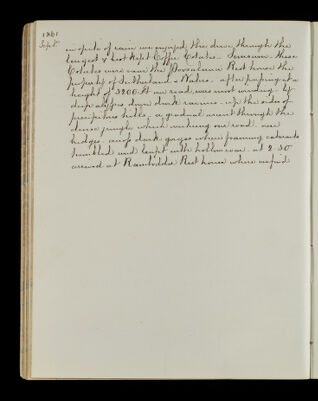 1861
Sept
in spite of rain we enjoyed the drive through the
longest & best kept Coffee Estates
Estates were near the Rest house the
property of Sutherland & after passing at a
height of 3200 ft our road was most winding
deep down dark ravines up the sides of
precipitous hills a gradual ascent through the
dense jungle which our road over
bridges across dark gorges where foaming cataracts
tumbled and leapt with hollow roar at 2.30
arrived at Ramboddie Rest house where we found